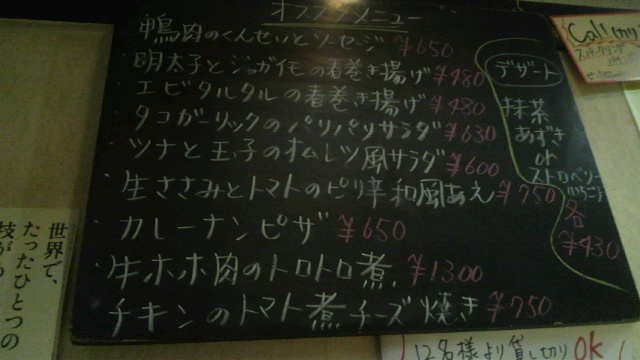 オススメメニュー
鴨肉のくんせいとソーセージ ¥650
明太子とジャガイモの春巻き揚げ ¥480
エビタルタルの春巻き揚げ ¥480
タコガーリックのパリパリサラダ ¥630
ツナと玉子のオムレツ風サラダ ¥600
生ささみとトマトのピリ辛和風あえ ¥750
カレーナンピザ ¥650
牛ホホ肉のトロトロ煮 ¥1300
チキンのトマト煮チーズ焼き ¥750
デザート
抹茶
あずき
or
ストロベリー
各
¥430
Call
世界で、
たったひとつの
技が
12名様より貸し切りOK